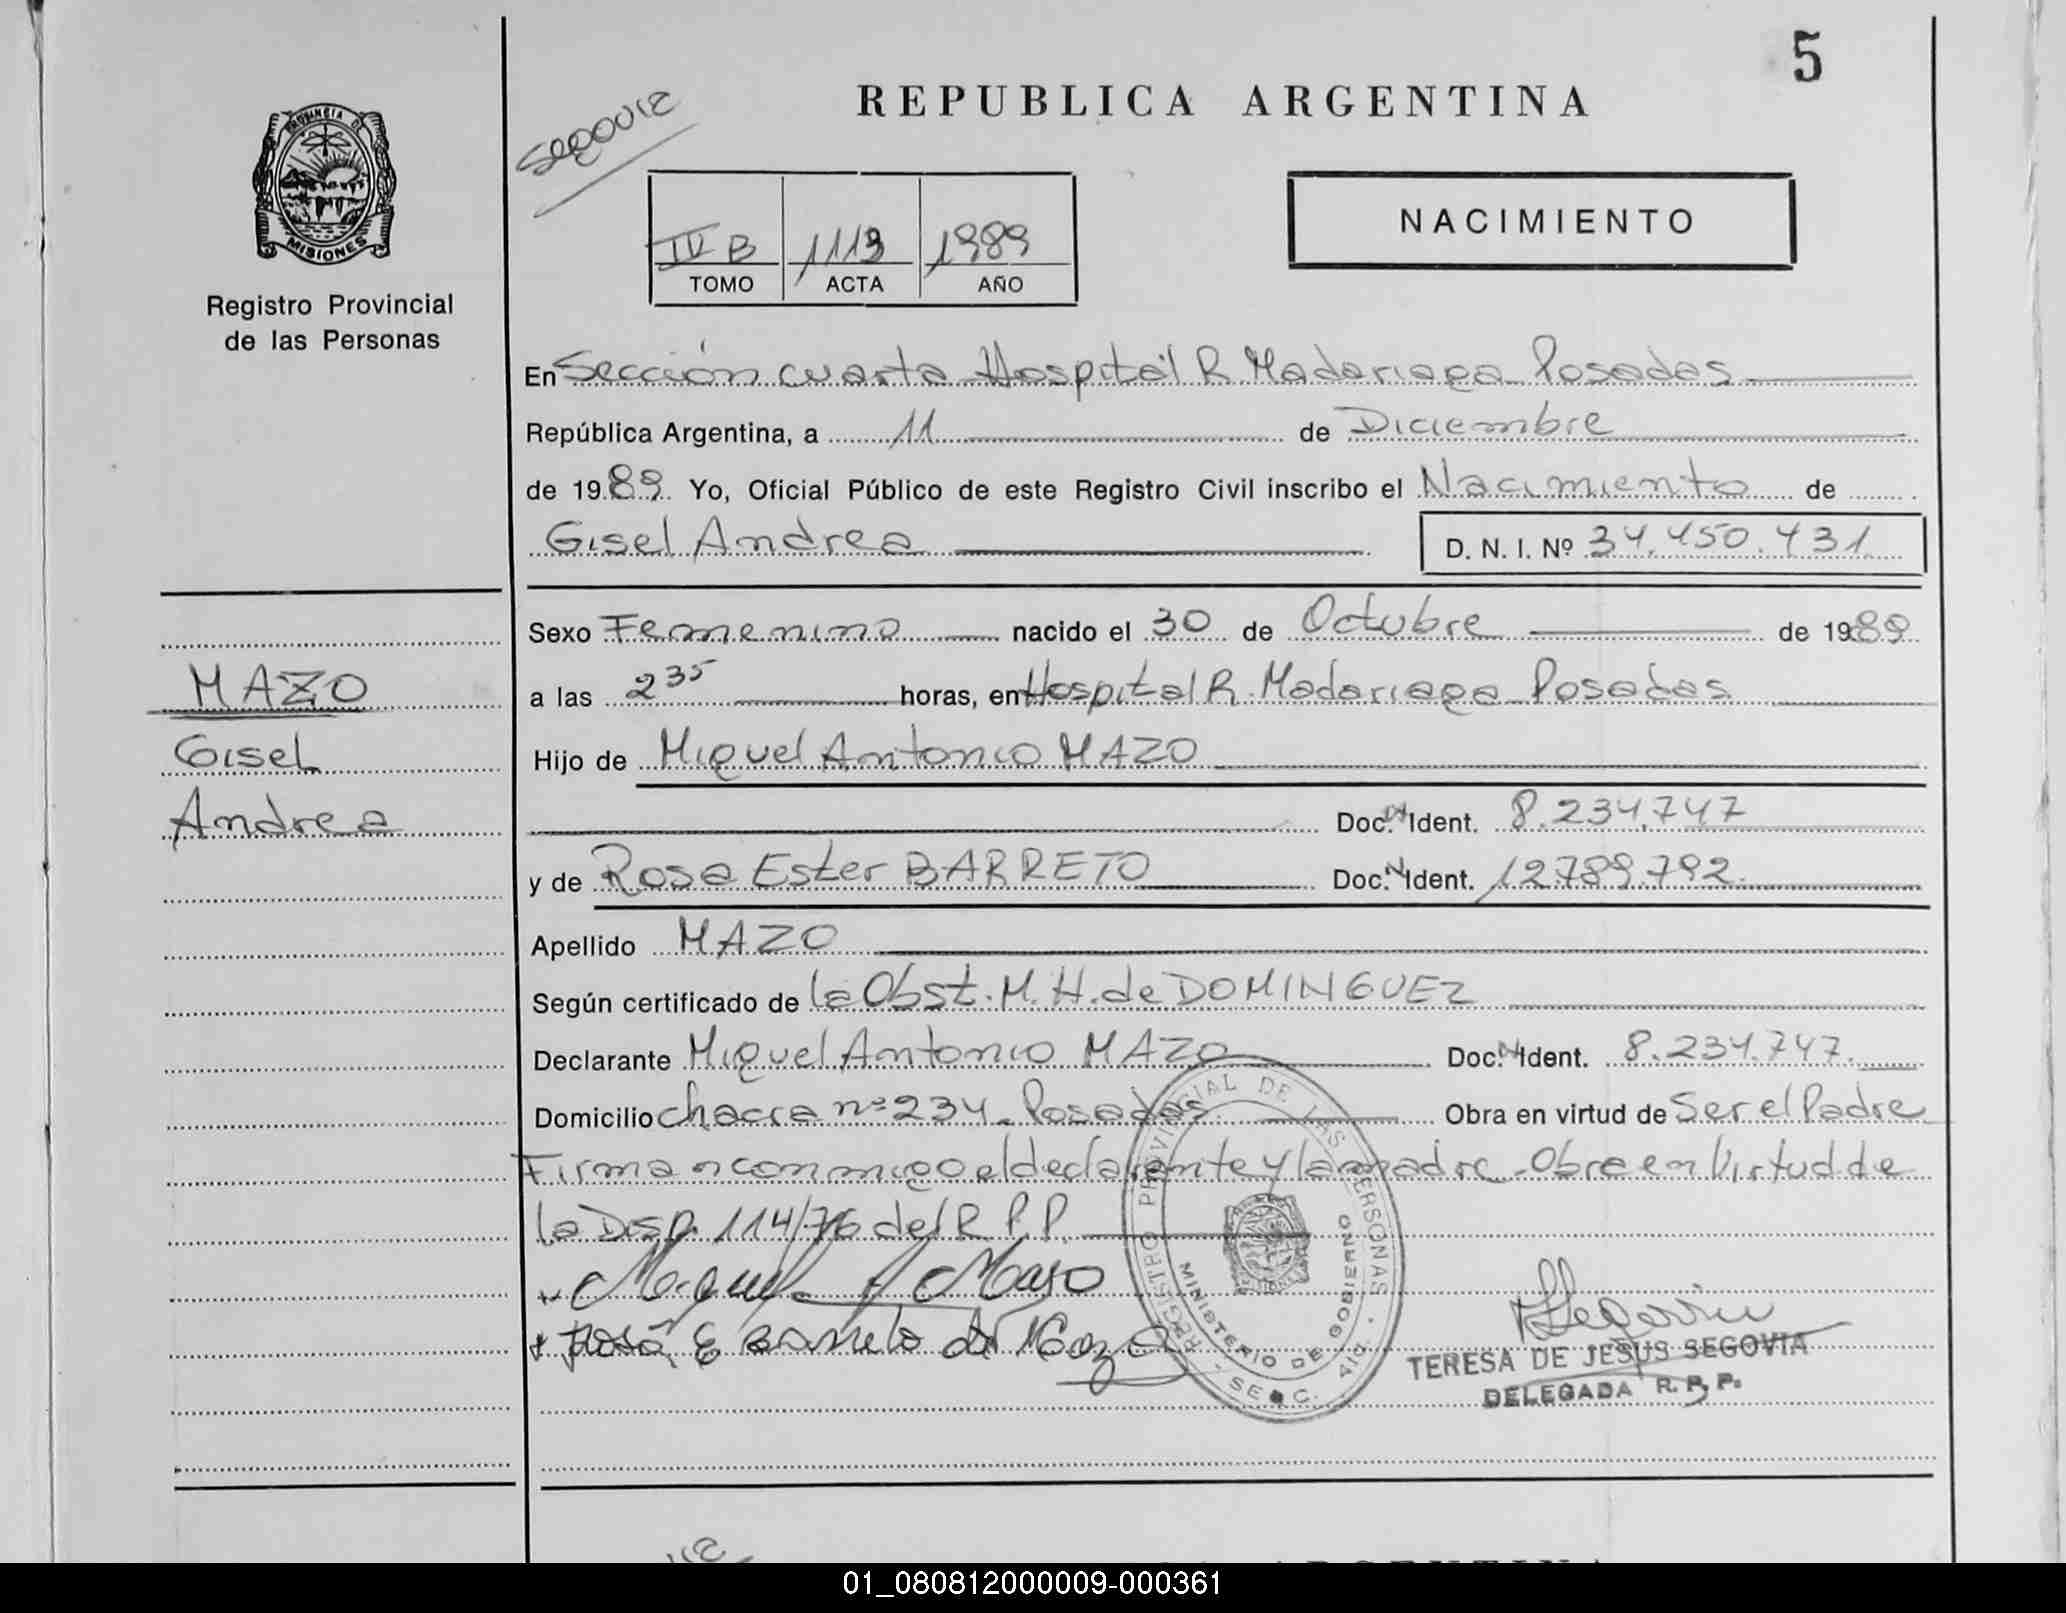 5
Segovia
REPUBLICA ARGENTINA
PROVINCIA DE
MISIONES
Registro Provincial
de las Personas
NACIMIENTO
IV B 1113 1989
TOMO ACTA AÑO
En Sección cuarta Hospital R Madariaga Posadas
República Argentina, a 11 de Diciembre
de 1989. Yo, Oficial Público de este Registro Civil inscribo el Nacimiento de
Gisel Andrea
D. N. I. Nº 34.450.431
Sexo Femenino nacido el 30 de Octubre de 1989
a las 2 35 horas, en Hospital R. Madariaga Posadas
MAZO
Gisel
Andrea
Hijo de Miguel Antonio MAZO
Doc. Ident. 8.234.747
y de Rosa Ester BARRETO Doc. N Ident. 12.789.792.
Apellido MAZO
Según certificado de la Obst. M. H. de DOMINGUEZ
Declarante Miguel Antonio MAZO Doc. N Ident. 8.234.747.
Domicilio Chacra nº 234 - Posadas Obra en virtud de Ser el Padre
Firman conmigo el declarante y la madre - Obra en Virtud de
la Disp. 114/76 del R P.P.
Miguel A Mazo
Rosa E Barreto de Mazo
REGISTRO PROVINCIAL DE LAS PERSONAS
MINISTERIO DE GOBIERNO
SECC. 4ta.
Segovia
TERESA DE JESUS SEGOVIA
DELEGADA R. P. P.
01_080812000009-000361